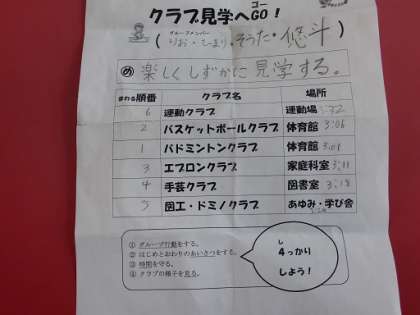 クラブ見学へGO!
ゴー
グループメンバー
(りお・ひまり・そうた・悠斗)
め 楽しくしずかに見学する。
まわる順番 クラブ名 場所
6 運動クラブ 運動場 3:22
2 バスケットボールクラブ 体育館 3:06
1 バドミントンクラブ 体育館 3:01
3 エプロンクラブ 家庭科室 3:11
4 手芸クラブ 図書室 3:18
5 図工・ドミノクラブ あゆみ・学び舎
① グループ行動をする。
② はじめとおわりのあいさつをする。
③ 時間を守る。
④ クラブの様子を見る。
し
4っかり
しよう!